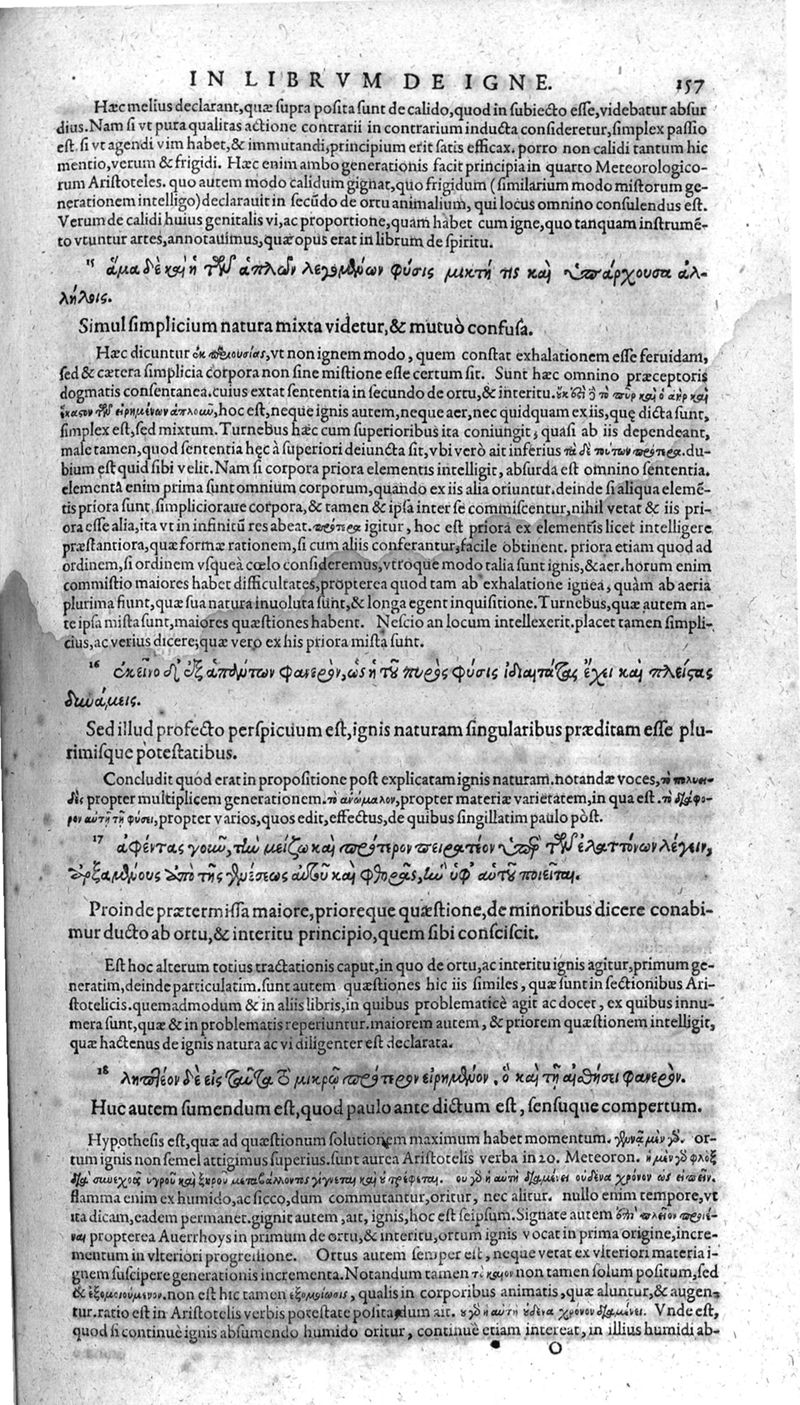 IN LIBRVM DE IGNE. 157
Hæc melius declarant, quæ supra posita sunt de calido, quod in subiecto esse, videbatur absur
dius. Nam si vt pura qualitas actione contrarii in contrarium inducta consideretur, simplex passio
est. si vt agendi vim habet, & immutandi, principium erit satis efficax. porro non calidi tantum hic
mentio, verum & frigidi. Hæc enim ambo generationis facit principia in quarto Meteorologico-
rum Aristoteles. quo autem modo calidum gignat, quo frigidum (similarium modo mistorum ge-
nerationem intelligo) declarauit in secūdo de ortu animalium, qui locus omnino consulendus est.
Verum de calidi huius genitalis vi, ac proportione, quam habet cum igne, quo tanquam instrumē-
to vtuntur artes, annotauimus, quæ opus erat in librum de spiritu.
15 ἅμα δὲ καὶ ἡ τῶν ἁπλῶν λεγομένων φύσις μικτή τις καὶ ὑπάρχουσα ἀλ-
λήλοις.
Simul simplicium natura mixta videtur, & mutuò confusa.
Hæc dicuntur ἐκ περιουσίας, vt non ignem modo, quem constat exhalationem esse feruidam,
sed & cætera simplicia corpora non sine mistione esse certum sit. Sunt hæc omnino præceptoris
dogmatis consentanea. cuius extat sententia in secundo de ortu, & interitu. οὐκ ἔστι δὲ τὸ πῦρ καὶ ὁ ἀὴρ καὶ
ἕκαστον τῶν εἰρημένων ἁπλοῦν, hoc est, neque ignis autem, neque aer, nec quidquam ex iis, quę dicta sunt,
simplex est, sed mixtum. Turnebus hæc cum superioribus ita coniungit, quasi ab iis dependeant,
male tamen, quod sententia hęc à superiori deiuncta sit, vbi verò ait inferius τὰ δὲ τούτων πρότερα. du-
bium est quid sibi velit. Nam si corpora priora elementis intelligit, absurda est omnino sententia.
elementa enim prima sunt omnium corporum, quando ex iis alia oriuntur. deinde si aliqua elemē-
tis priora sunt simplicioraue corpora, & tamen & ipsa inter se commiscentur, nihil vetat & iis pri-
ora esse alia, ita vt in infinitū res abeat. πρότερα igitur, hoc est priora ex elementis licet intelligere
præstantiora, quæ formæ rationem, si cum aliis conferantur, facile obtinent. priora etiam quod ad
ordinem, si ordinem vsque à cœlo consideremus, vtroque modo talia sunt ignis, & aer. horum enim
commistio maiores habet difficultates, propterea quod tam ab exhalatione ignea, quàm ab aeria
plurima fiunt, quæ sua natura inuoluta sunt, & longa egent inquisitione. Turnebus, quæ autem an-
te ipsa mista sunt, maiores quæstiones habent. Nescio an locum intellexerit. placet tamen simpli-
cius, ac verius dicere; quæ vero ex his priora mista sunt.
16 ἐκεῖνο δ' ἐξ ἁπάντων φανερὸν, ὡς ἡ τοῦ πυρὸς φύσις ἰδιαιτάτας ἔχει καὶ πλείστας
δυνάμεις.
Sed illud profecto perspicuum est, ignis naturam singularibus præditam esse plu-
rimisque potestatibus.
Concludit quod erat in propositione post explicatam ignis naturam. notandæ voces, τὸ πολυει-
δὲς propter multiplicem generationem. τὸ ἀνώμαλον, propter materiæ varietatem, in qua est. τὸ διάφο-
ρον αὐτῇ τῇ φύσει, propter varios, quos edit, effectus, de quibus singillatim paulo pòst.
17 ἀφέντας γοῦν, τὴν μείζω καὶ πρότερον πειρατέον ὑπὲρ τῶν ἐλαττόνων λέγειν,
ἀρξαμένους ἀπὸ τῆς γενέσεως αὐτοῦ καὶ φθορᾶς, ἣν ὑφ' αὑτοῦ ποιεῖται.
Proinde prætermissa maiore, prioreque quæstione, de minoribus dicere conabi-
mur ducto ab ortu, & interitu principio, quem sibi consciscit.
Est hoc alterum totius tractationis caput, in quo de ortu, ac interitu ignis agitur, primum ge-
neratim, deinde particulatim. sunt autem quæstiones hic iis similes, quæ sunt in sectionibus Ari-
stotelicis. quemadmodum & in aliis libris, in quibus problematicè agit ac docet, ex quibus innu-
mera sunt, quæ & in problematis reperiuntur. maiorem autem, & priorem quæstionem intelligit,
quæ hactenus de ignis natura ac vi diligenter est declarata.
18 ληπτέον δὲ εἰς ταῦτα τὸ μικρῷ πρότερον εἰρημένον, ὃ καὶ τῇ αἰσθήσει φανερὸν.
Huc autem sumendum est, quod paulo ante dictum est, sensuque compertum.
Hypothesis est, quæ ad quæstionum solutionem maximum habet momentum. γεννᾶ μὲν γὰρ. or-
tum ignis non semel attigimus superius. sunt aurea Aristotelis verba in 20. Meteoron. ἡ μὲν γὰρ φλὸξ
διὰ συνεχοῦς ὑγροῦ καὶ ξηροῦ μεταβάλλοντος γίγνεται καὶ οὐ τρέφεται. οὐ γὰρ ἡ αὐτὴ διαμένει οὐδένα χρόνον ὡς εἰπεῖν.
flamma enim ex humido, ac sicco, dum commutantur, oritur, nec alitur. nullo enim tempore, vt
ita dicam, eadem permanet. gignit autem, ait, ignis, hoc est seipsum. Signate autem ἐπὶ πλεῖον προϊέ-
ναι propterea Auerrhoys in primum de ortu, & interitu, ortum ignis vocat in prima origine, incre-
mentum in vlteriori progressione. Ortus autem semper est, neque vetat ex vlteriori materia i-
gnem suscipere generationis incrementa. Notandum tamen non tamen solum positum, sed
& ἐξομοιούμενον. non est hic tamen ἐξομοίωσις, qualis in corporibus animatis, quæ aluntur, & augen-
tur. ratio est in Aristotelis verbis potestate posita, dum ait. οὐ γὰρ ἡ αὐτὴ οὐδένα χρόνον διαμένει. Vnde est,
quod si continuè ignis absumendo humido oritur, continuè etiam intereat, in illius humidi ab-
O